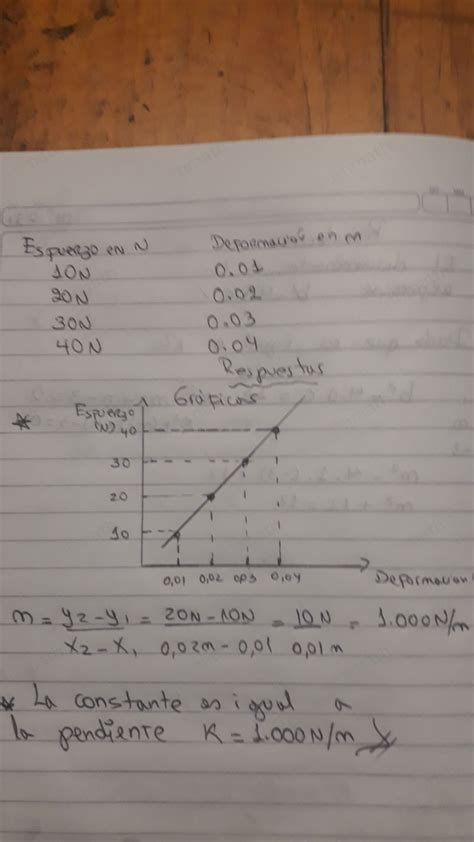 Esfuerzo en N Deformación en m
10N 0.01
20N 0.02
30N 0.03
40N 0.04
Respuestas
Gráficos
* Esfuerzo
(N) 40
30
20
10
0,01 0,02 0,03 0,04 Deformacion
m = y2-y1 = 20N-10N = 10N = 1.000N/m
x2-x1 0,02m-0,01 0,01m
* La constante es igual a
la pendiente K = 1.000N/m